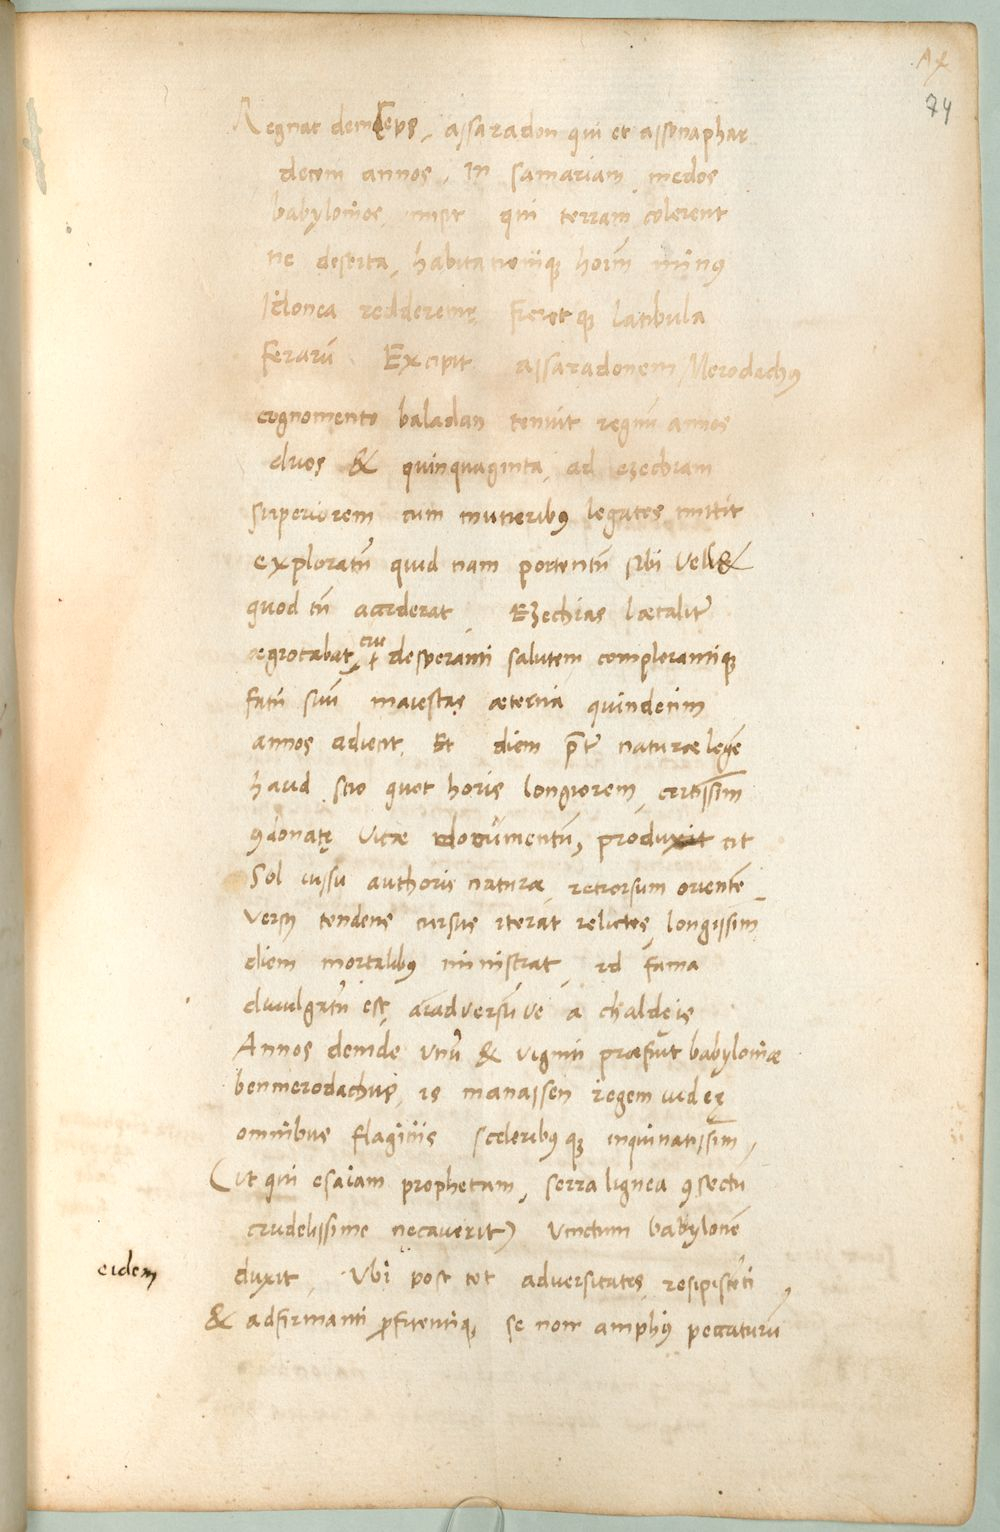 74
Regnat deinceps, assaradon qui et assenaphar
decem annos, In samariam medos
babylonios misit qui terram colerent
ne deserta, habitationiq̃ʒ hoīm minꝰ
Idonea redderetur fieretqʒ latibula
ferarū Excipit assaradonem Merodachꝰ
cognomento baladan tenuit regnū annos
duos & quinquaginta, ad ezechiam
superiorem cum muneribꝰ legatos mittit
exploratū quid nam portentū sibi vell&
quod tū acciderat Ezechias lœtalit̃
ægrotabat, cui desperanti salutem complorantiqʒ
fatū suū maiestas æterna quindecim
annos adiecit, Et diem p̄t̃ naturæ legē
haud scio quot horis longiorem, certissim̄
ꝯdonatę vitæ documentū, produxit ut
Sol iussu authoris naturæ, retrorsum orientē
versꝰ tendens cursus iterat relictos, longissim̄
diem mortalibꝰ ministrat, id fama
divulgatū est, animadversūve a chaldeis
Annos deinde unū & viginti præfuit babyloniæ
benmerodachus, is manassen regem iudeę
omnibus flagitiis sceleribꝰqʒ inquinatissim̄,
(ut qui esaiam prophetam, serra lignea ꝯsectū
crudelissime necaverit) vinctum babylonē
eidem
duxit, Ubi post tot adversitates, resipiscēti
& adfirmanti ꝓfitentiqʒ, se non ampliꝰ peccaturū